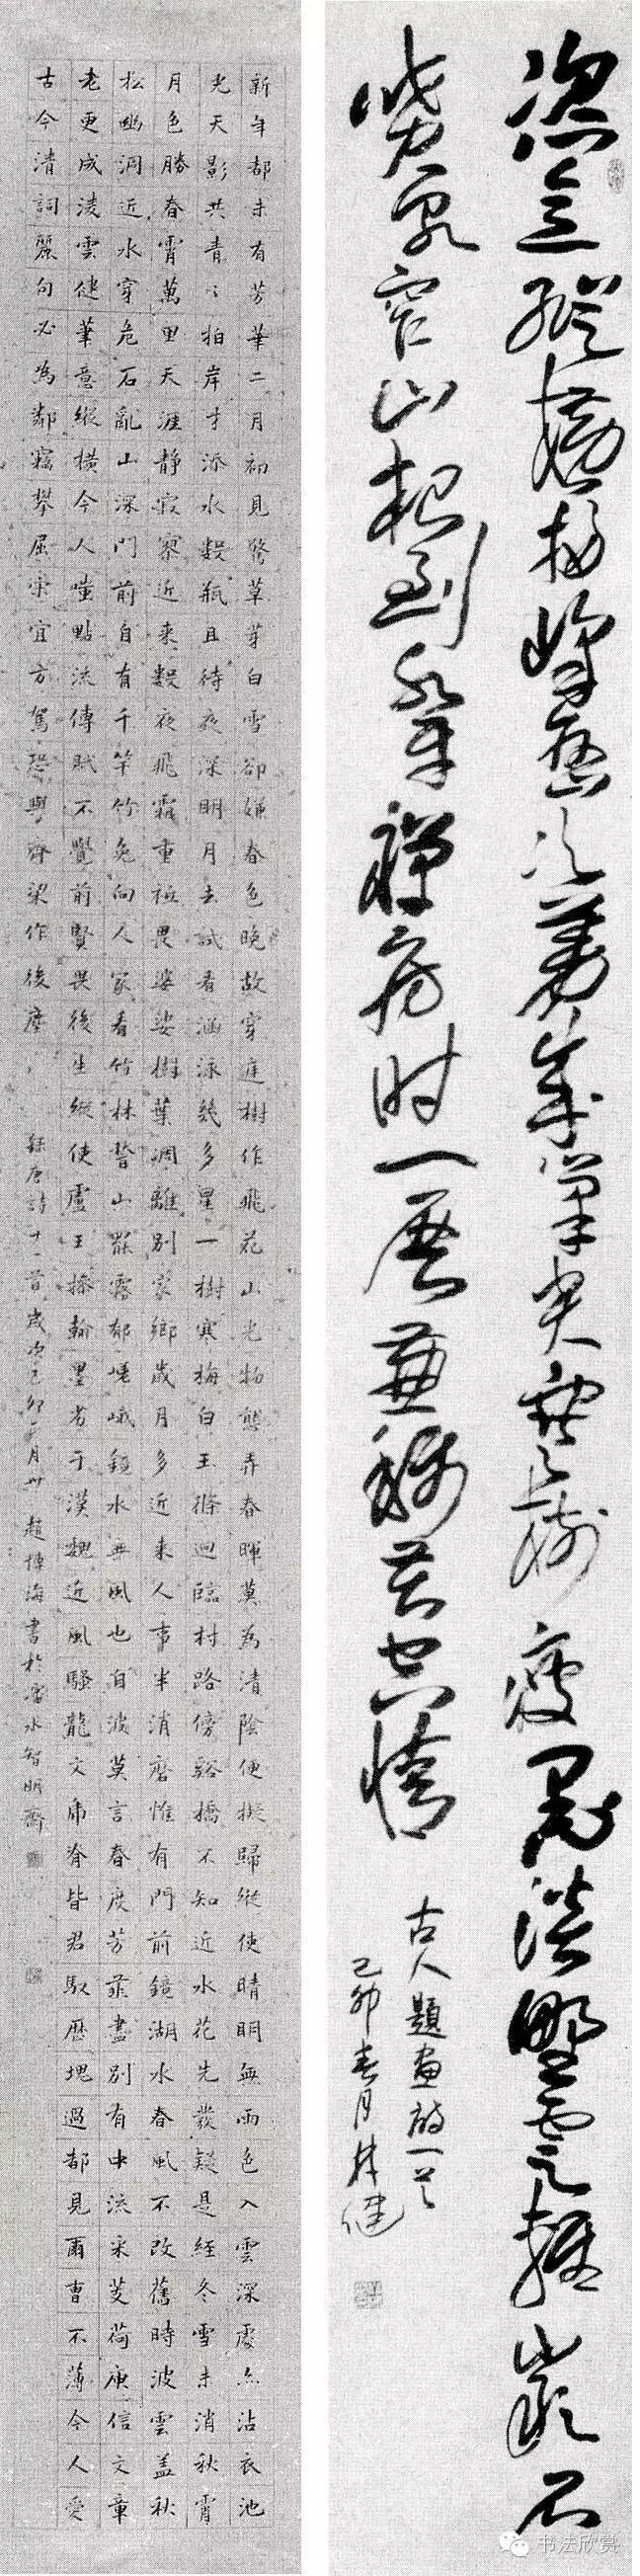 恣意縱橫掃峰巒次第成筆尖寒樹瘦墨淡野雲輕巖石
噴泉窄山根到水平禪房時一展兼稱苦空情
古人題畫詩一首
己卯春月林健
新年都未有芳華二月初見驚草芽白雪卻嫌春色晚故穿庭樹作飛花山光物態弄春暉莫為清陰便擬歸縱使晴明無雨色入雲深處亦沾衣池
光天影共青〻拍岸才添水數瓶且待夜深明月去試看涵泳幾多星一樹寒梅白玉條迥臨村路傍谿橋不知近水花先發疑是經冬雪未消秋霄
月色勝春霄萬里天涯靜寂寥近來數夜飛霜重祇畏婆娑樹葉凋離別家鄉歲月多近來人事半消磨惟有門前鏡湖水春風不改舊時波雲蓋秋
松幽洞近水穿危石亂山深門前自有千竿竹免向人家看竹林暫山罷霧郁嵯峨鏡水無風也自波莫言春度芳菲盡別有中流采芰荷庾信文章
老更成淩雲健筆意縱橫今人嗤點流傳賦不覺前賢畏後生縱使盧王操翰墨劣于漢魏近風騷龍文虎脊皆君馭歷塊過都見爾曹不薄今人愛
古今清詞麗句必為鄰竊攀屈宋宜方駕恐與齊梁作後塵
錄唐詩十一首歲次己卯月廿趙博海書於水智明齋
書法欣賞